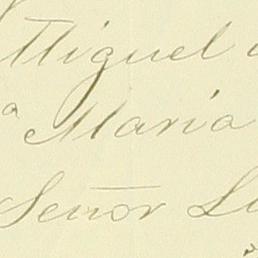 Miguel
a Maria
Señor